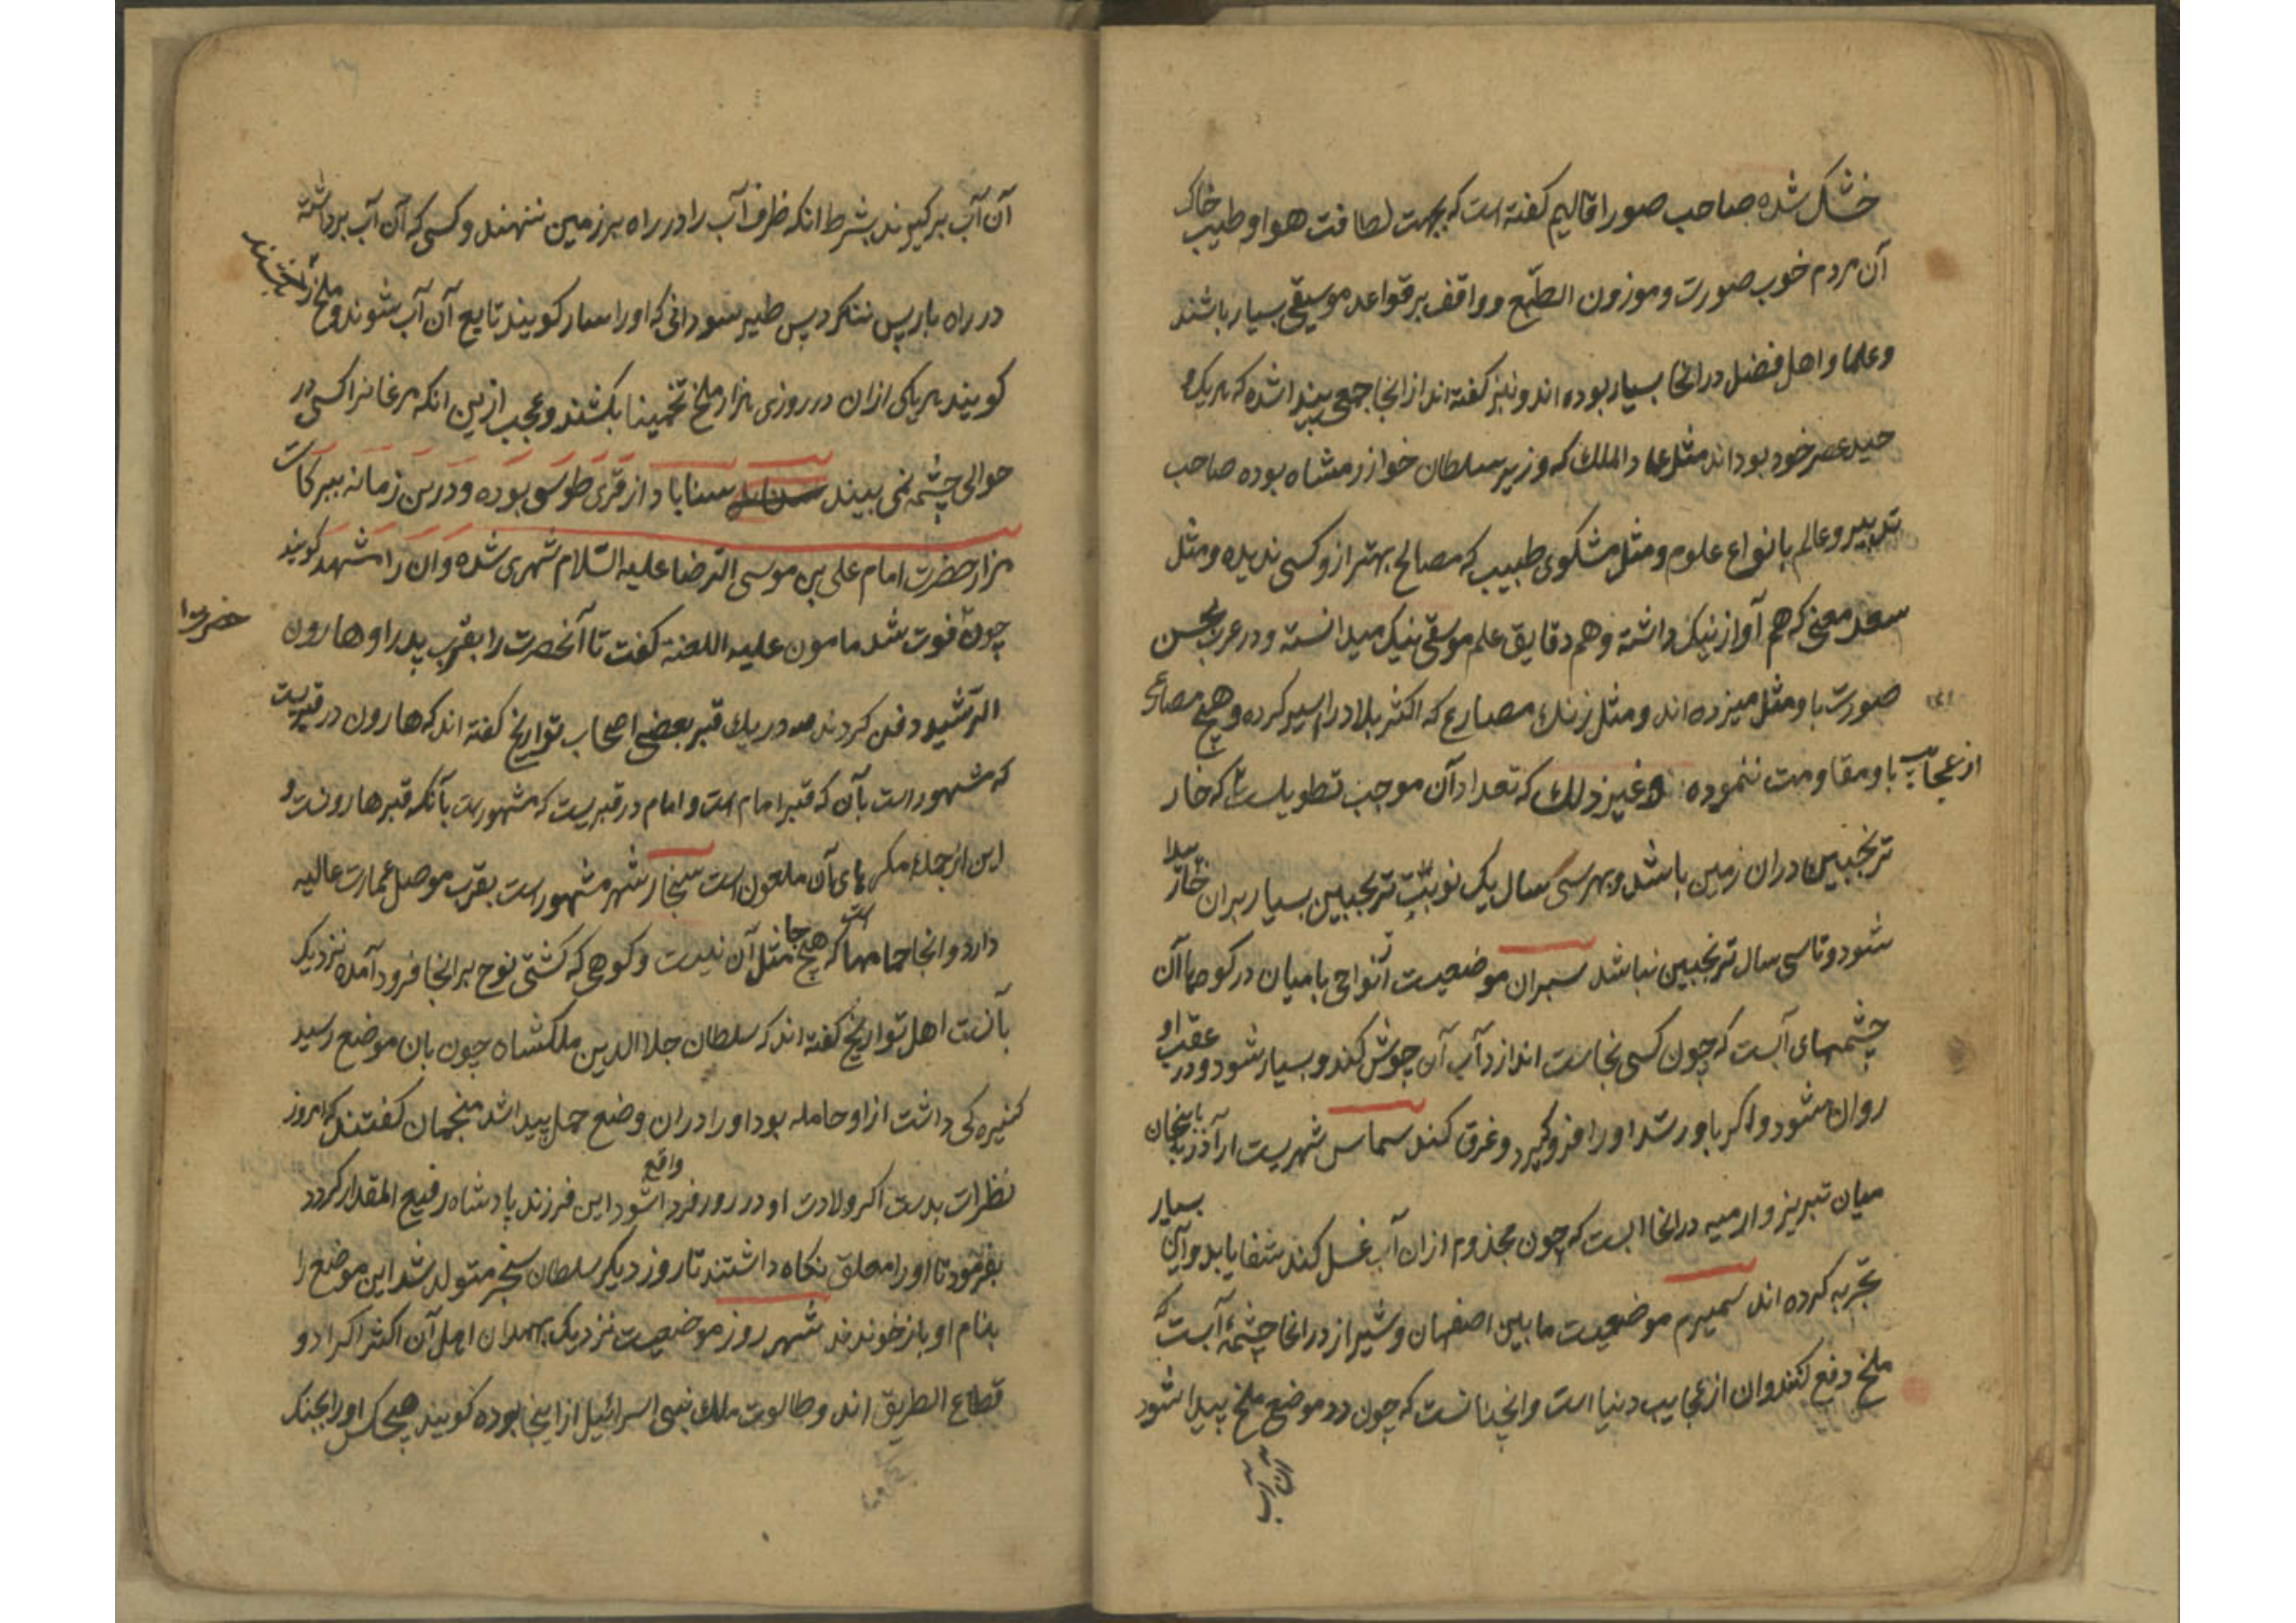 خشک شده صاحب صور اقالیم کفته است که بجهت لطافت هوا و طیب خاک
آن مردم خوب صورت و موزون الطبع و واقف بر قواعد موسیقی بسیار باشند
و علما و اهل فضل در انجا بسیار بوده اند و نیز کفته اند از انجا جمعی پیدا شده که هر یک و
حید عصر خود بوداند مثل عماد الملک که وزیر سلطان خوارزمشاه بوده صاحب
تدبیر و عالم بانواع علوم و مثل مشکوی طبیب که مصالح بهتر ازو کسی ندیده و مثل
سعد مغنی که هم آواز نیک داشته و هم دقایق علم موسیقی نیک میدانسته و در عرب بحسن
صورت باو مثل میزده اند و مثل زنک مصارع که اکثر بلاد را سیر کرده و هیچ مصارع
باو مقاومت ننموده و غیر ذلک که تعداد آن موجب تطویلست از عجایب که خار
ترنجبین دران زمین باشد و بهر سی سال یک نوبت ترنجبین بسیار بران خار پیدا
شود و تا سی سال ترنجبین نباشد سمبران موضعیست آنواحی بامیان در کوهها آن
چشمهای آبست که چون کسی نجاست اندازد آب آن جوش کند و بسیار شود و در عقب او
روان شود و اکر باو رسد او را فرو کیرد و غرق کند سماس شهریست از آذربایجان
میان تبریز و ارمیه در انجا ابست که چون مجذوم ازان آب غسل کند شفا یابد و این بسیار
تجربه کرده اند سمیرم موضعیست مابین اصفهان و شیراز در انجا چشمهٔ آبست که
ملخ دفع کند و ان از عجایب دنیا است و انچنانست که چون در موضع ملخ پیدا شود
آن آب
آن آب بر کیرند بشرط انکه ظرف آب را در راه بر زمین ننهند و کسی که آن آب برداشته
در راه بازپس ننکرد پس طیر سودانی که او را سار کویند تابع آن آب شوند و ملخ را بکشند
کویند هر یکی ازان در روزی هزار ملخ تخمینا بکشند و عجب ازین انکه مرغانرا کسی در
حوالی چشمه نمی بیند سناباد از قری طوس بوده و درین زمانه ببرکات
مزار حضرت امام علی بن موسی الرضا علیه السلام شهری شده و ان را مشهد کویند
چون فوت شد مامون علیه اللعنه کفت تا آنحضرت را بقرب پدر او هارون
حضرت
الرشید دفن کردند در یک قبر بعضی اصحاب تواریخ کفته اند که هارون در قبریست
که مشهور است بآن که قبر امام است و امام در قبریست که مشهورست بآنکه قبر هارونست و
این از جمله مکرهای آن ملعون است سنجار شهر مشهور است بقرب موصل عمارت عالیه
دارد و انجا حمامها است که هیچ جا مثل آن نیست و کوهی که کشتی نوح بر انجا فرود آمده نزدیک
بآنست اهل تواریخ کفته اند که سلطان جلال الدین ملکشاه چون بان موضع رسید
کنیزکی داشت از او حامله بود او را دران وضع حمل پیدا شد منجمان کفتند که امروز
نظرات بدست اکر ولادت او در روز فردا واقع شود این فرزند پادشاه رفیع المقدار کردد
بفرمود تا او را معلق نکاه داشتند تا روز دیکر سلطان سنجر متولد شد این موضع را
بنام او باز خوندند شهر روز موضعیست نزدیک بهمدان اهل آن اکثر اکراد و
قطاع الطریق اند و طالوت ملک بنی اسرائیل از اینجا بوده کویند هیچکس او را بجنک